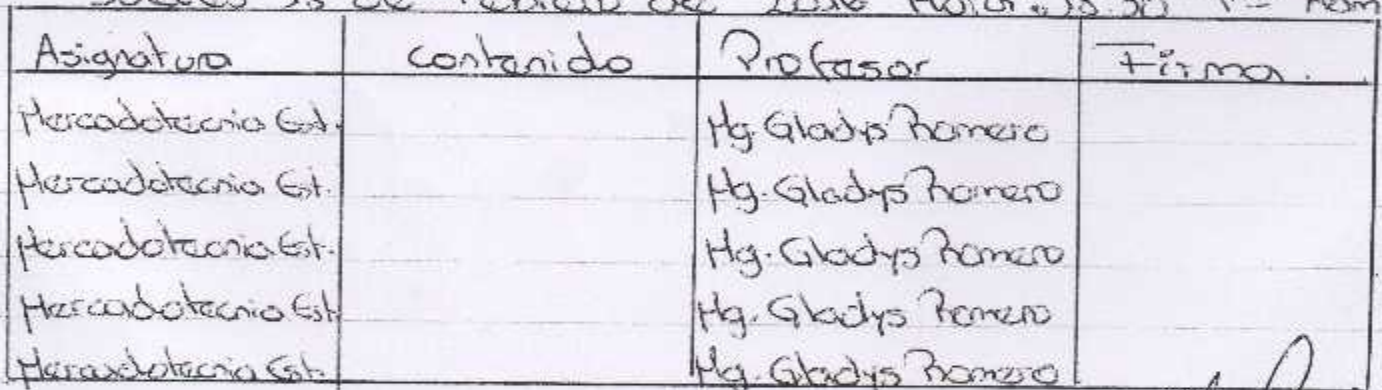 Jueves 25 de Febrero de 2016 Hora: 18:30
Asignatura contenido Profesor Firma.
Mercadotecnia Est. Mg. Gladys Romero
Mercadotecnia Est. Mg. Gladys Romero
Mercadotecnia Est. Mg. Gladys Romero
Mercadotecnia Est. Mg. Gladys Romero
Mercadotecnia Est. Mg. Gladys Romero